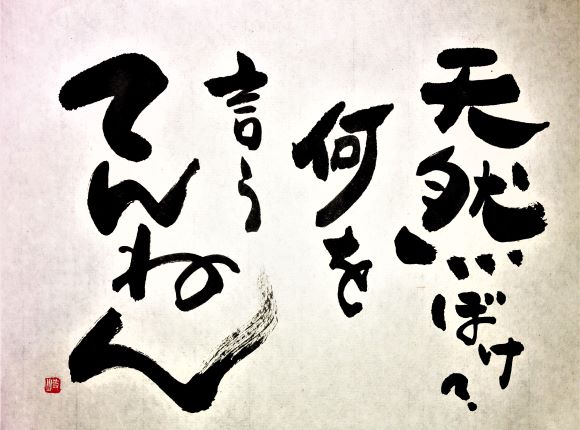 天然ぼけ?
何を
言う
てんねん